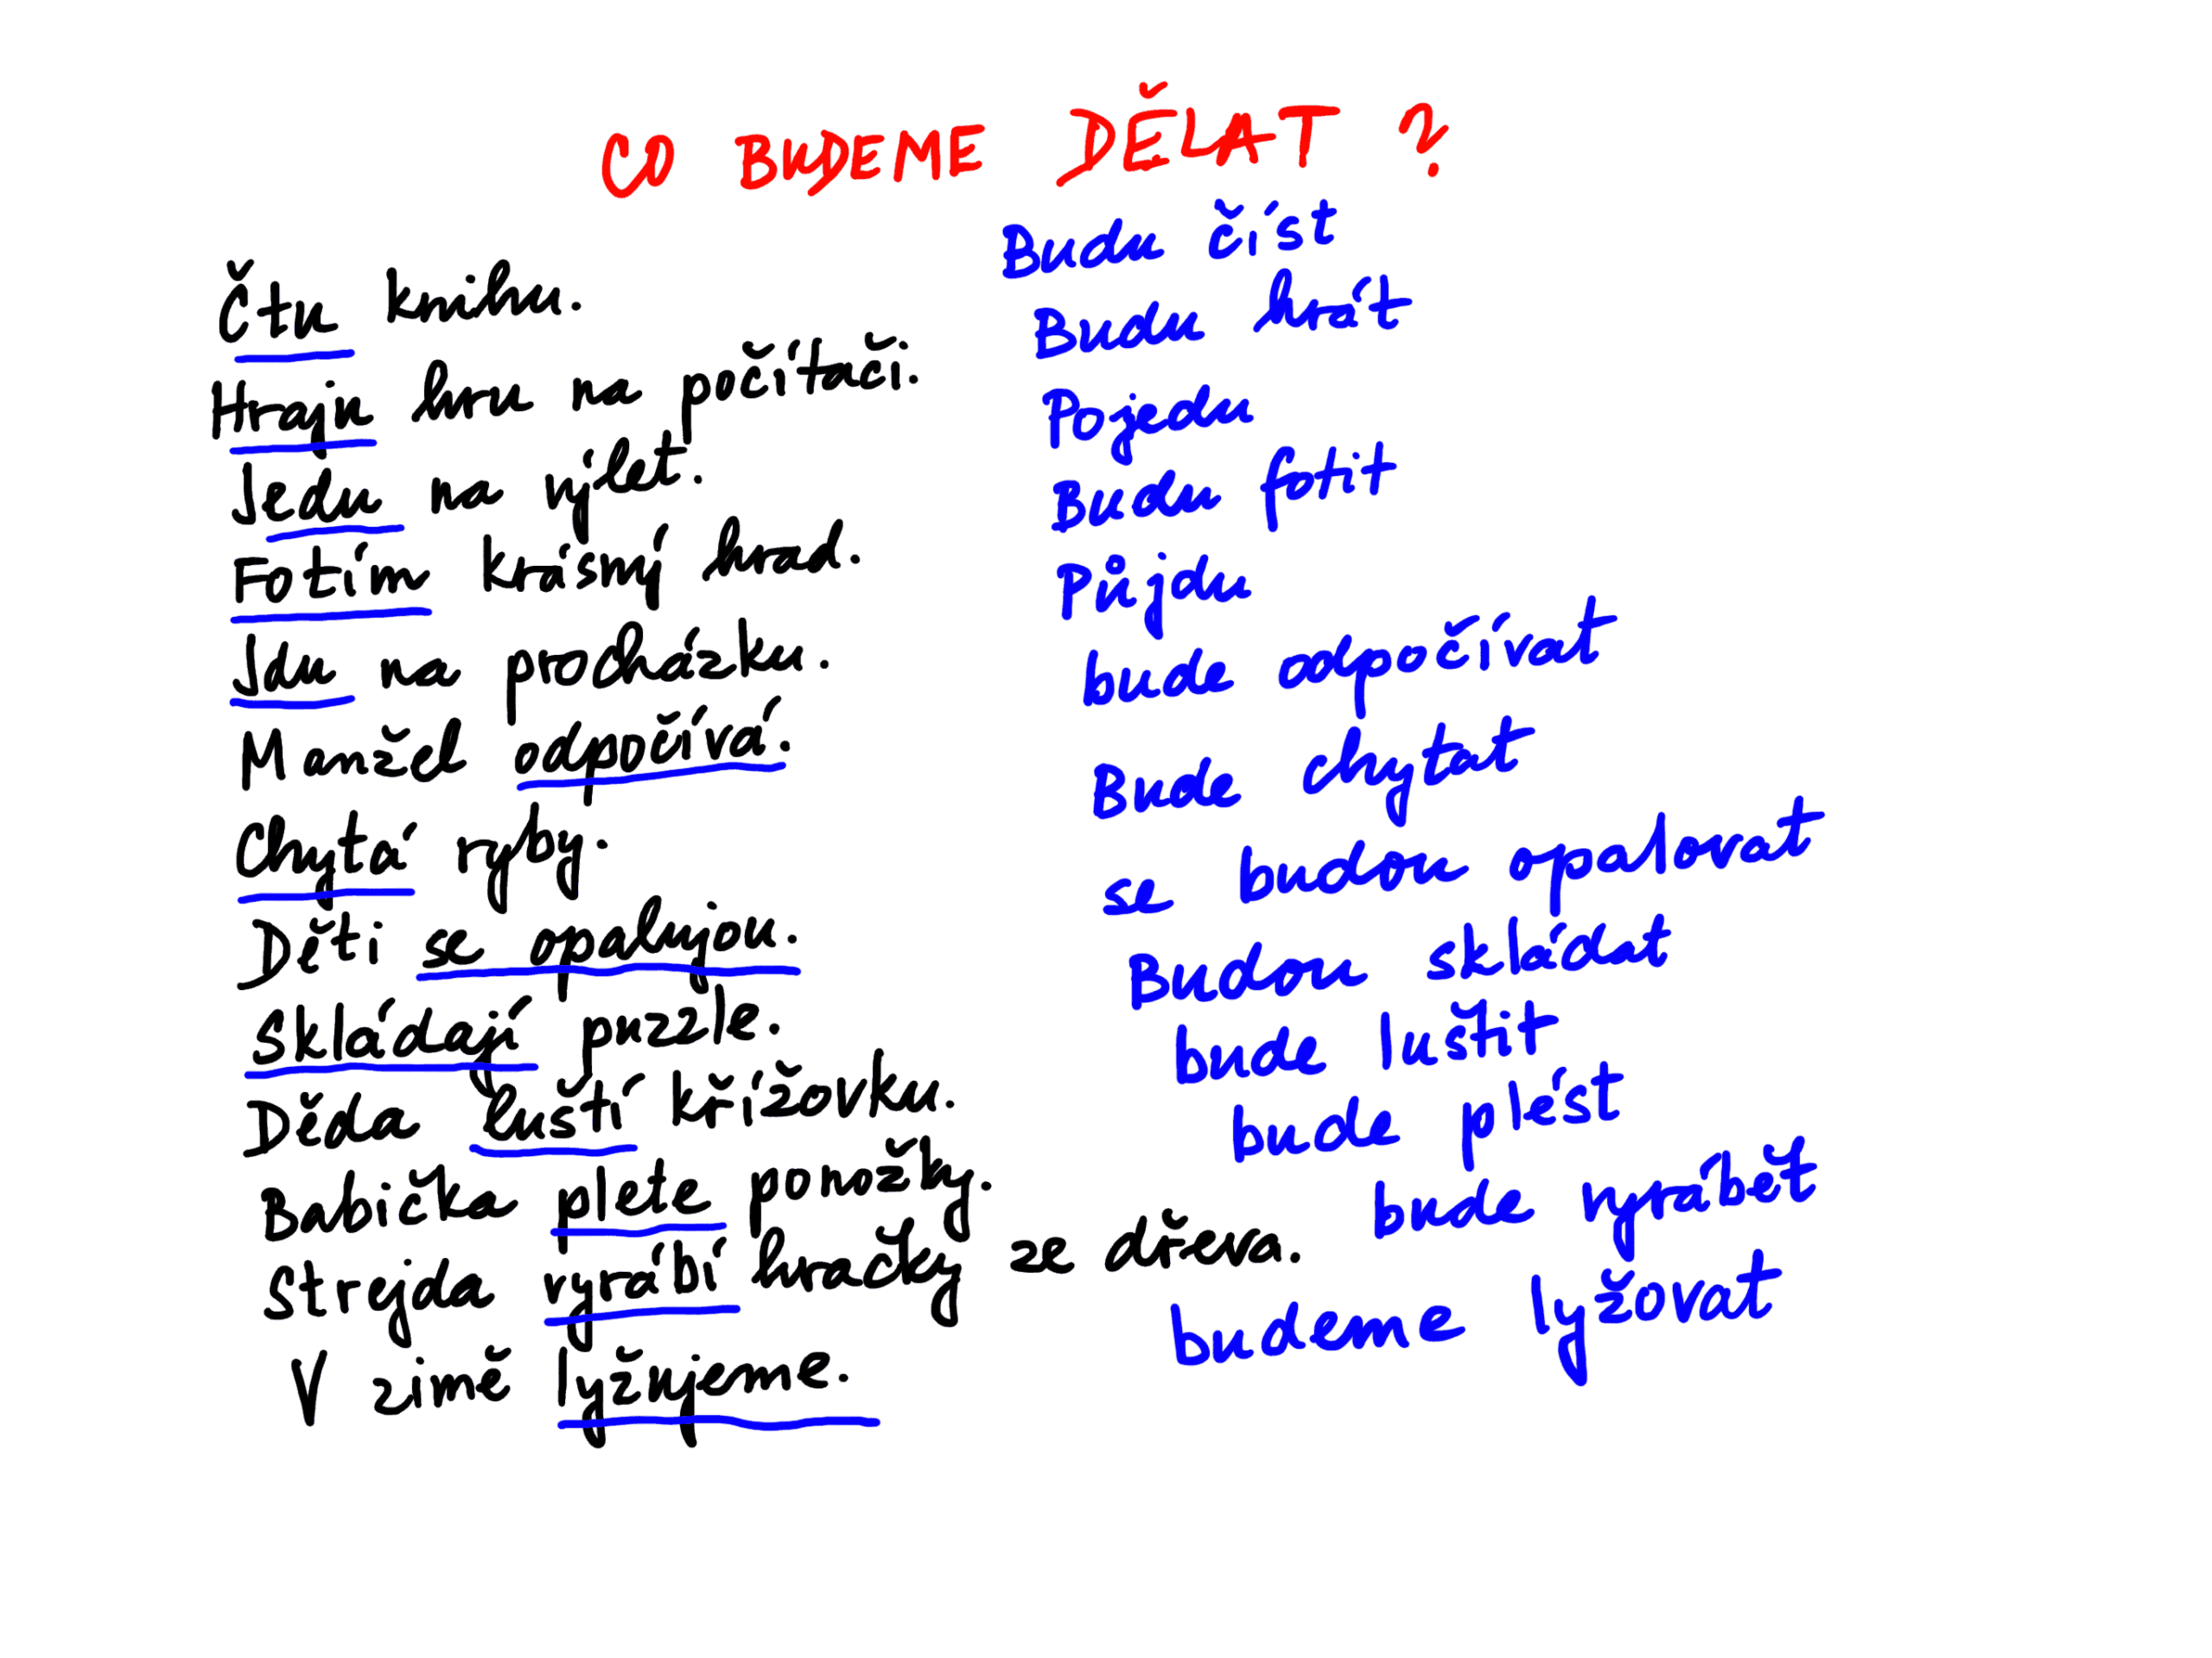 CO BUDEME DĚLAT ?
Budu číst
Čtu knihu.
Budu hrát
Hraju hru na počítači.
Pojedu
Jedu na výlet.
Budu fotit
Fotím krásný hrad.
Půjdu
Jdu na procházku.
bude odpočívat
Manžel odpočívá.
Bude chytat
Chytá ryby.
se budou opalovat
Děti se opalujou.
Budou skládat
Skládají puzzle.
bude luštit
Děda luští křížovku.
bude plést
Babička plete ponožky.
bude vyrábět
Strejda vyrábí hračky ze dřeva.
budeme lyžovat
V zimě lyžujeme.